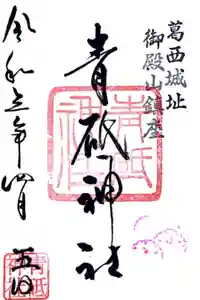 葛西城址
御殿山鎮座
青砥神社
令和三年四月
五日